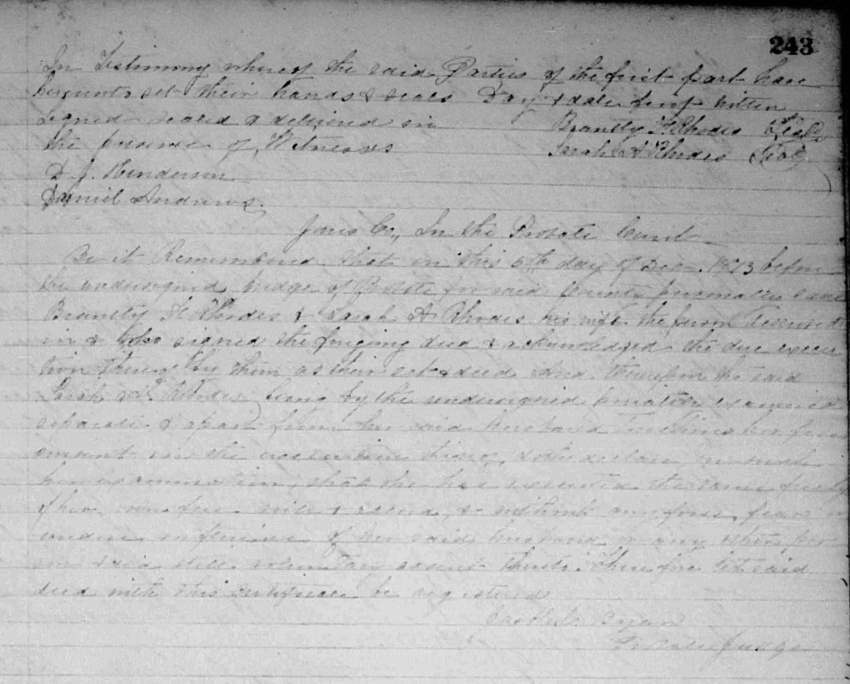 243
In Testimony whereof the said Parties of the first part have
hereunto set their hands & seals Day & date first written
Signed sealed & delivered in Brantly H Rhodes Seal
the presence of Witness Sarah A Rhodes Seal
D. J. Henderson
Daniel Andrews
Jones Co, In the Probate Court
Be it Remembered that on this 5th day of Dec before
the undersigned Judge of Probate for said County personally came
Brantly H Rhodes & Sarah A Rhodes his wife the person
in & who signed the foregoing deed & acknowledged the due execu
tion thereof by them as their act & deed And thereupon the said
Sarah A Rhodes being by the undersigned privately examined
separate & apart from her said husband touching her free
in the execution thereof doth declare on such
her examination that she has executed the same freely
of her own free will & accord, & without any force, fear or
undue influence of her said husband or any other per
son & did still voluntary assent thereto. Therefore let said
deed with this certificate be registered
Bryan
Probate Judge